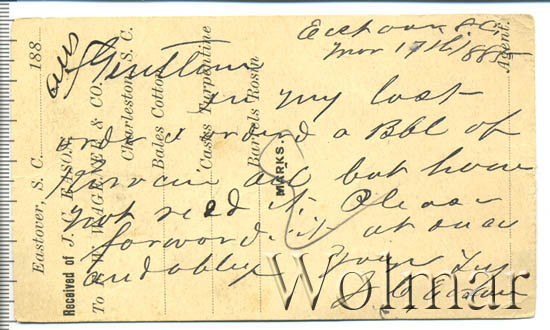 Eastover S.C.
Nov 17th 1885
Gentlemen
in my last
order I ordered a Bbl of
but have
not recd it. Please
forward it at once
and oblige Yours Truly
Eastover, S. C. 188
Received of J. C. EASON,
To F. W. WAGENER & CO.
Charleston, S. C.
Bales Cotton
Casks Turpentine
Barrels Rosin
MARKS.
Agent.
Wolmar